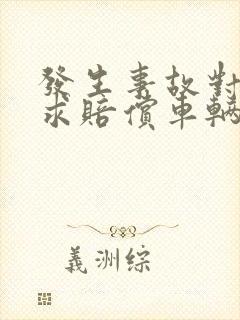 發生事故對
求賠償車輛
義洲綜